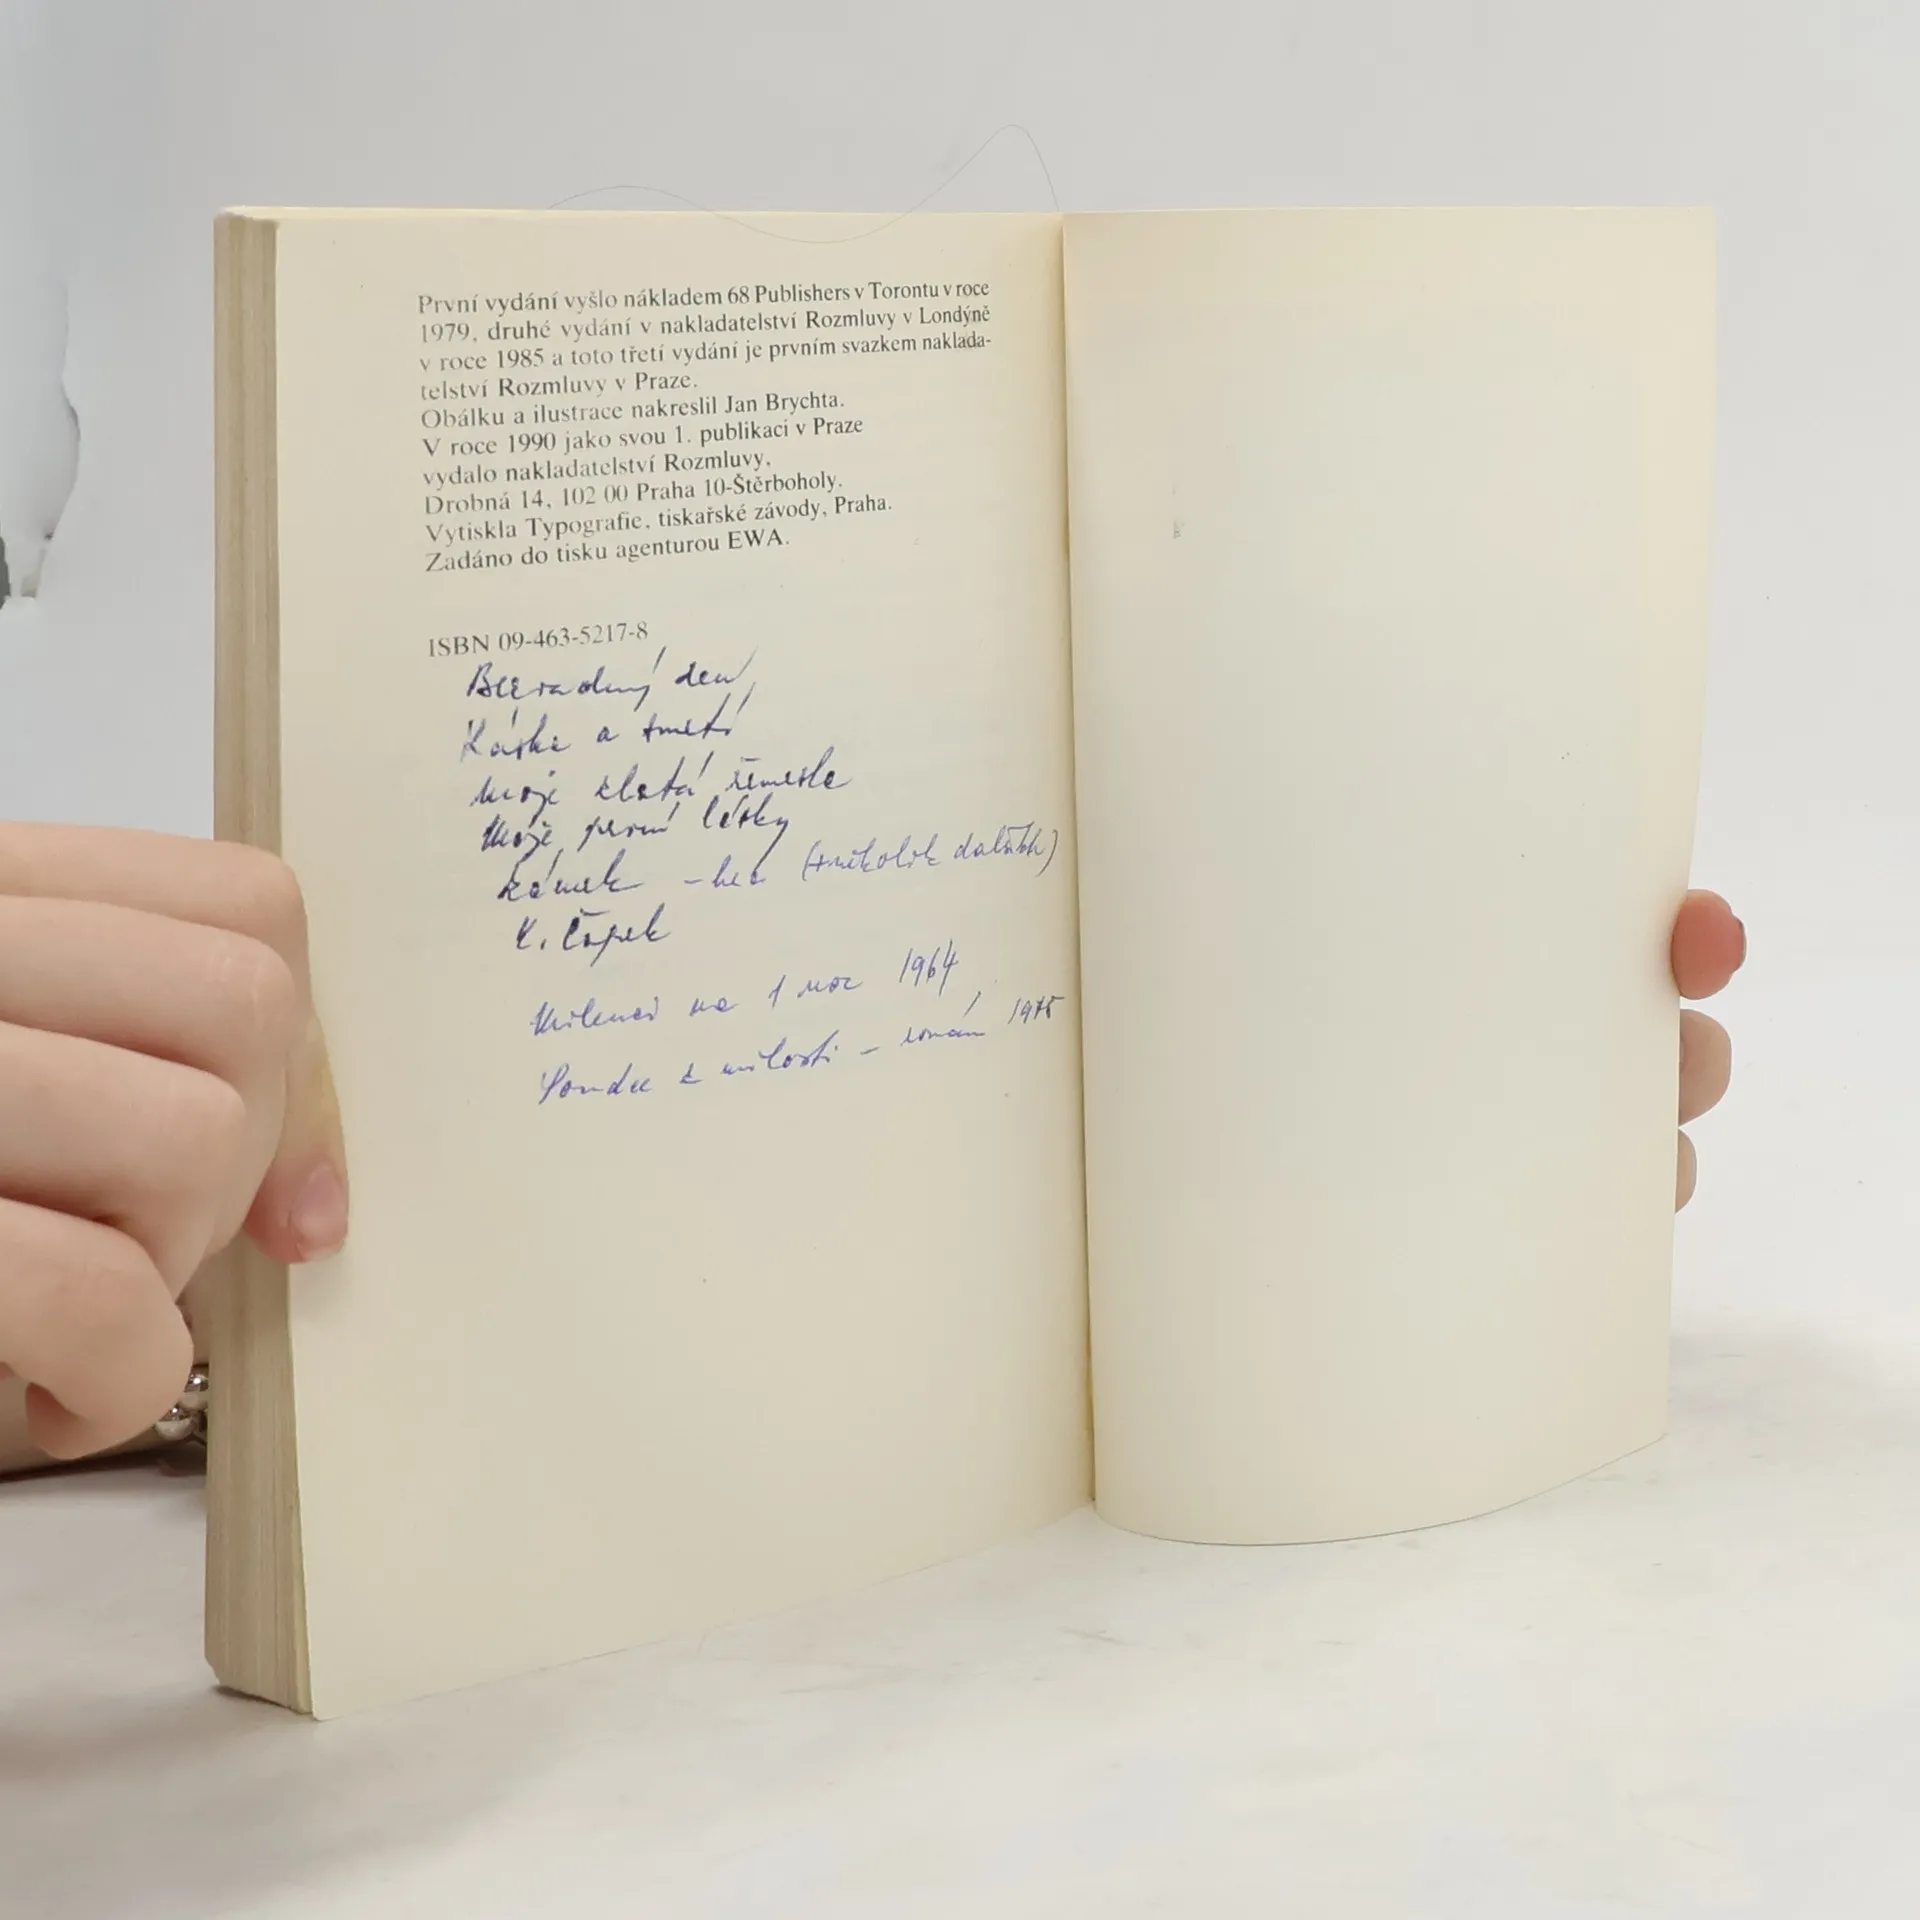 První vydání vyšlo nákladem 68 Publishers v Torontu v roce
1979, druhé vydání v nakladatelství Rozmluvy v Londýně
v roce 1985 a toto třetí vydání je prvním svazkem naklada-
telství Rozmluvy v Praze.
Obálku a ilustrace nakreslil Jan Brychta.
V roce 1990 jako svou 1. publikaci v Praze
vydalo nakladatelství Rozmluvy,
Drobná 14, 102 00 Praha 10-Štěrboholy.
Vytiskla Typografie, tiskařské závody, Praha.
Zadáno do tisku agenturou EWA.
ISBN 09-463-5217-8
den
a smetí
Moje zlatá řemesla
Moje první lásky
Zámek - hra (+několik dalších)
K. Čapek
Milenci na 1 noc 1964
Soudce z milosti - román 1975